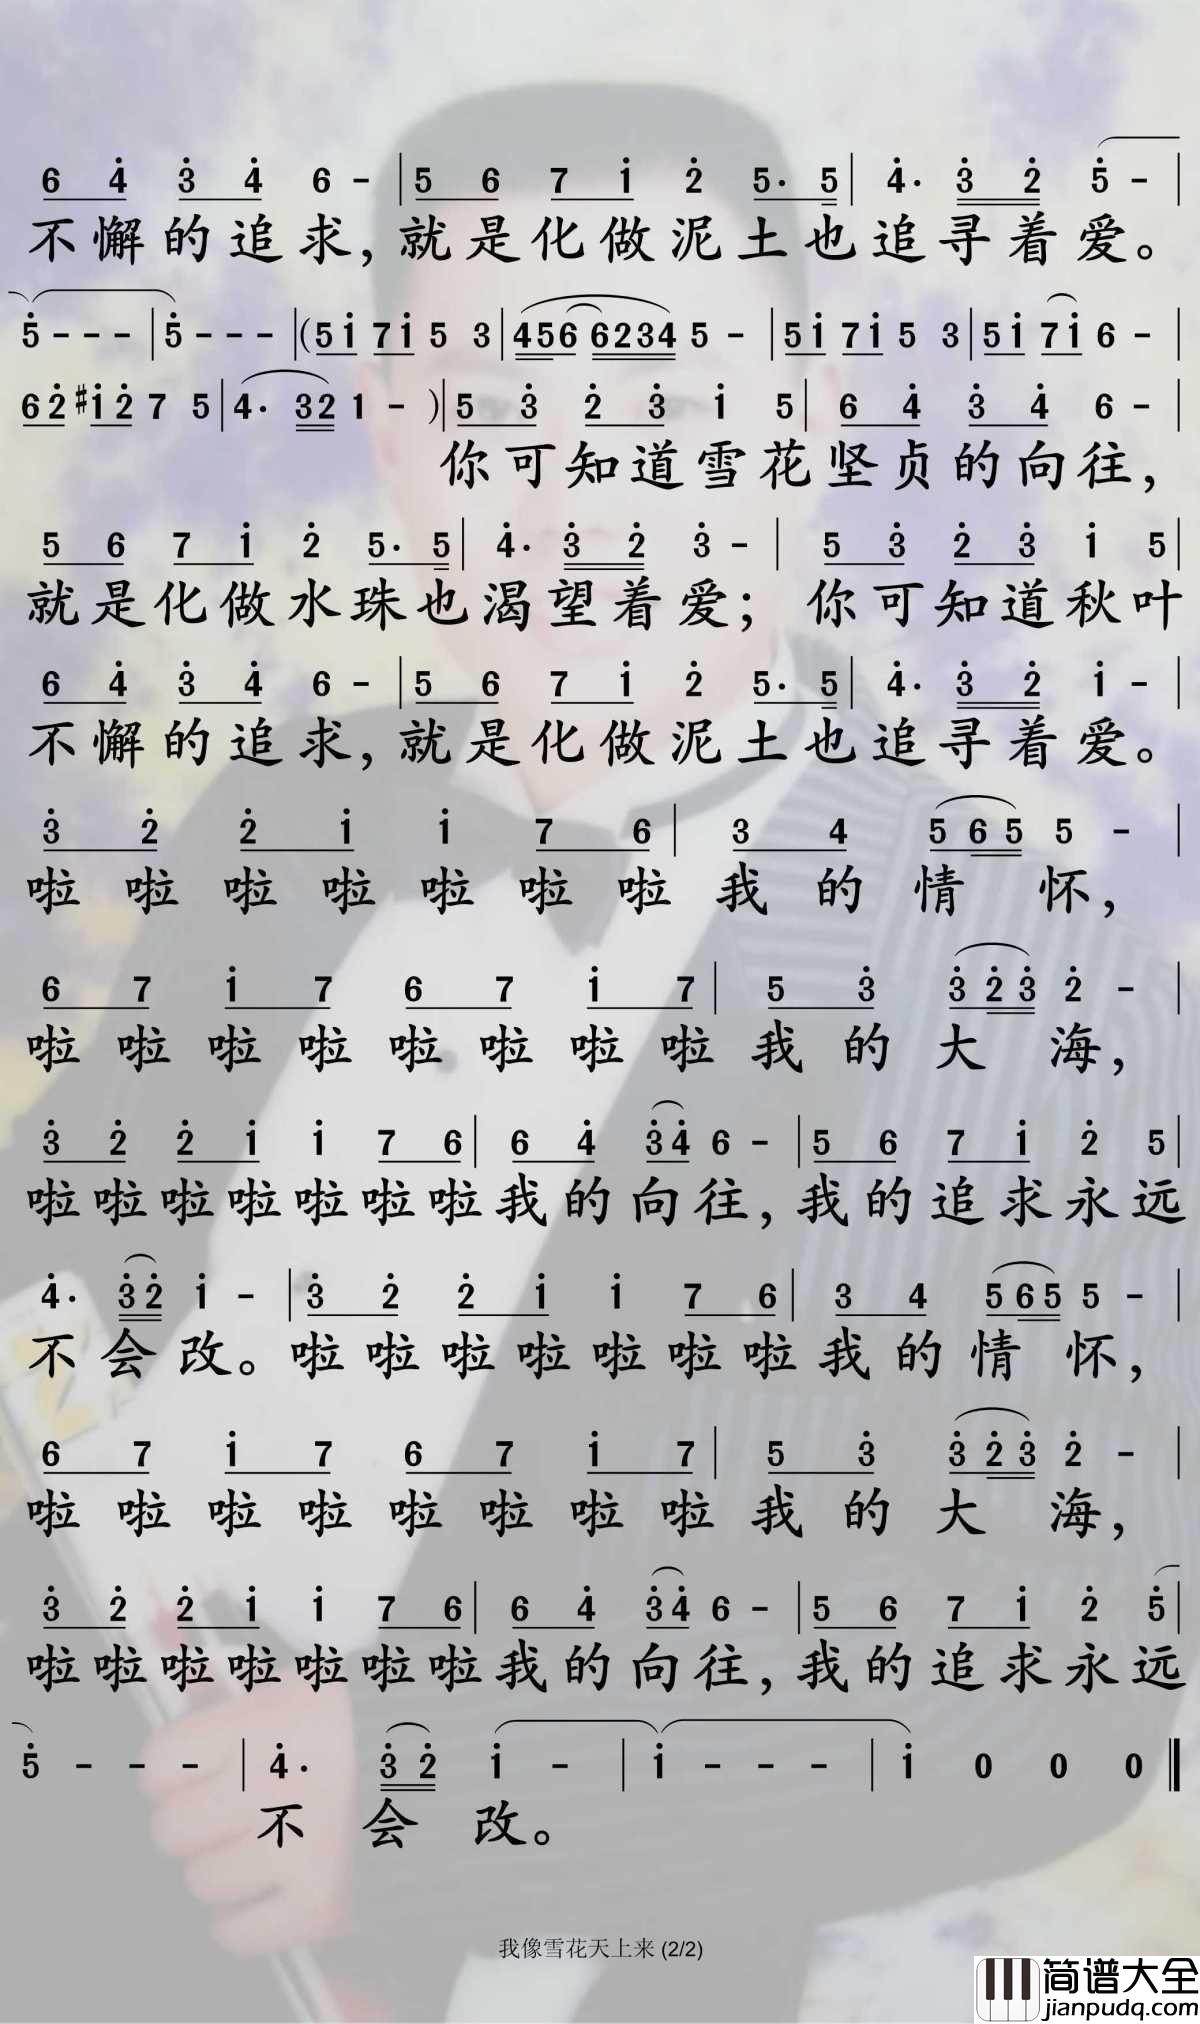 6 4 3 4 6 - | 5 6 7 1 2 5· 5 | 4· 3 2 5 - |
不懈的追求，就是化做泥土也追寻着爱。
5 - - - | 5 - - - | (5 1 7 1 5 3 | 4 5 6 6 2 3 4 5 - | 5 1 7 1 5 3 | 5 1 7 1 6 - |
6 2 #1 2 7 5 | 4· 3 2 1 - ) | 5 3 2 3 1 5 | 6 4 3 4 6 - |
你可知道雪花坚贞的向往，
5 6 7 1 2 5· 5 | 4· 3 2 3 - | 5 3 2 3 1 5 |
就是化做水珠也渴望着爱；你可知道秋叶
6 4 3 4 6 - | 5 6 7 1 2 5· 5 | 4· 3 2 1 - |
不懈的追求，就是化做泥土也追寻着爱。
3 2 2 1 1 7 6 | 3 4 5 6 5 5 - |
啦啦啦啦啦啦啦我的情怀，
6 7 1 7 6 7 1 7 | 5 3 3 2 3 2 - |
啦啦啦啦啦啦啦啦我的大海，
3 2 2 1 1 7 6 | 6 4 3 4 6 - | 5 6 7 1 2 5 |
啦啦啦啦啦啦啦我的向往，我的追求永远
4· 3 2 1 - | 3 2 2 1 1 7 6 | 3 4 5 6 5 5 - |
不会改。啦啦啦啦啦啦啦我的情怀，
6 7 1 7 6 7 1 7 | 5 3 3 2 3 2 - |
啦啦啦啦啦啦啦啦我的大海，
3 2 2 1 1 7 6 | 6 4 3 4 6 - | 5 6 7 1 2 5 |
啦啦啦啦啦啦啦我的向往，我的追求永远
5 - - - | 4· 3 2 1 - | 1 - - - | 1 0 0 0 ‖
不会改。
我像雪花天上来 (2/2)
简谱大全
jianpudq.com